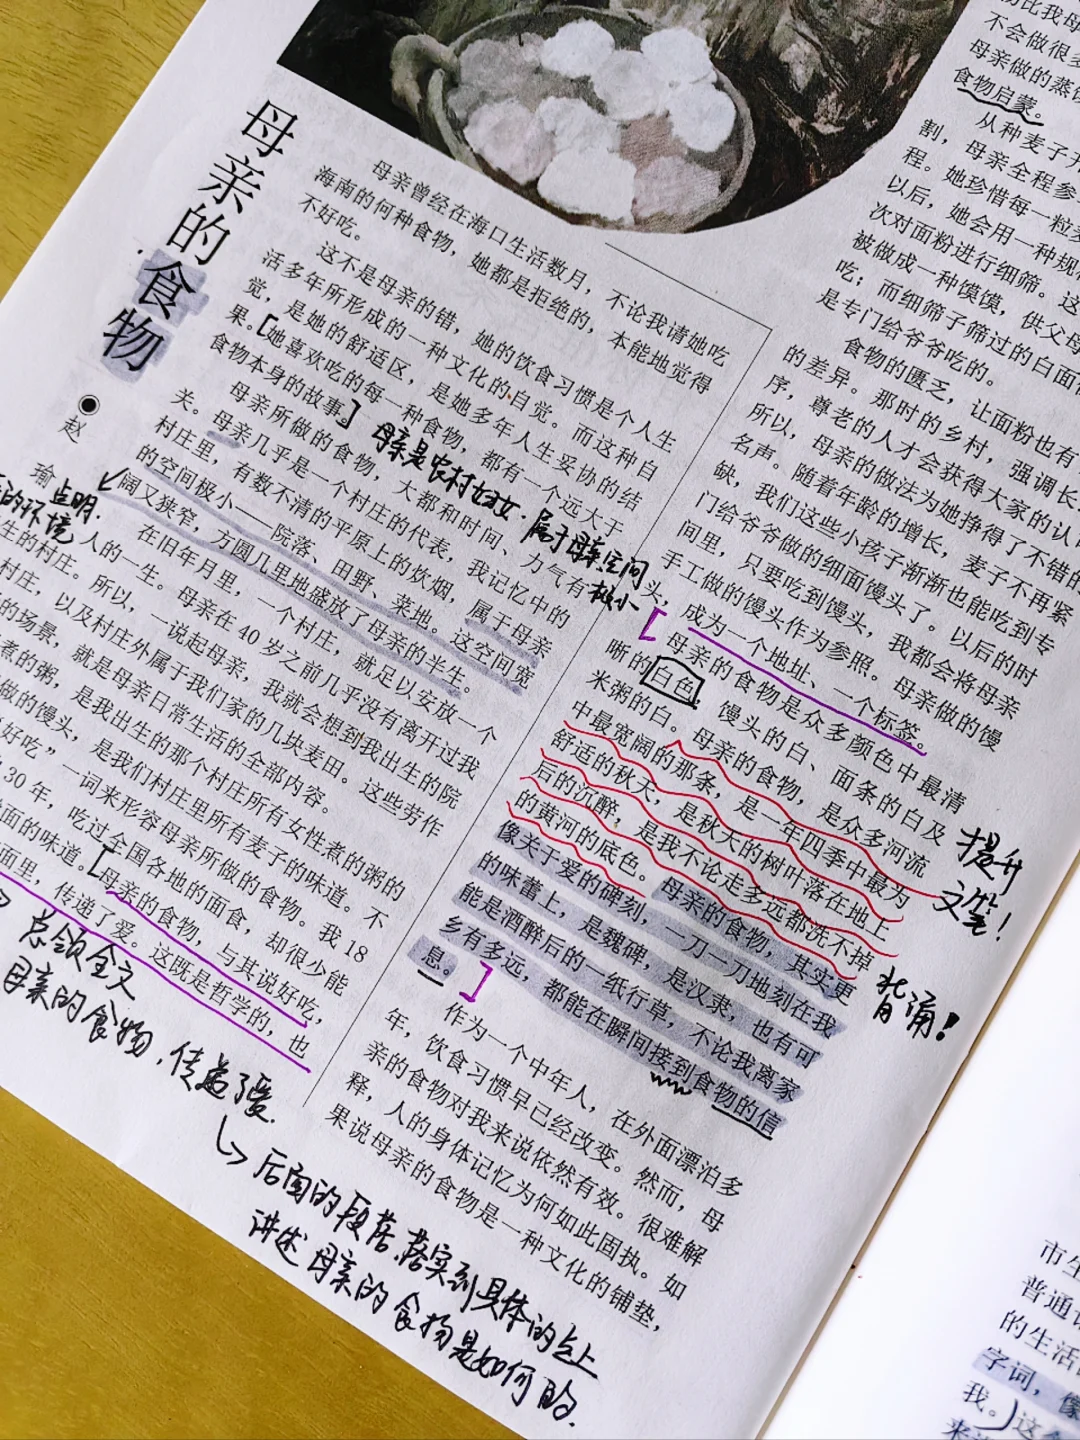 母亲的食物
◉赵
瑜
母亲曾经在海口生活数月，不论我请她吃
海南的何种食物，她都是拒绝的，本能地觉得
不好吃。
这不是母亲的错，她的饮食习惯是个人生
活多年所形成的一种文化的自觉。而这种自
觉，是她的舒适区，是她多年人生妥协的结
果。[她喜欢吃的每一种食物，都有一个远大于
食物本身的故事。]
母亲是农村妇女，属于母亲空间
极小
母亲所做的食物，大都和时间、力气有
关。母亲几乎是一个村庄的代表，我记忆中的
村庄里，有数不清的平原上的炊烟，属于母亲
的空间极小——院落、田野、菜地。这空间宽
阔又狭窄，方圆几里地盛放了母亲的半生。
点明
的环境
在旧年月里，一个村庄，就足以安放一个
人的一生。母亲在40岁之前几乎没有离开过我
生的村庄。所以，一说起母亲，我就会想到我出生的院
村庄，以及村庄外属于我们家的几块麦田。这些劳作
的场景，就是母亲日常生活的全部内容。
煮的粥，是我出生的那个村庄所有女性煮的粥的
做的馒头，是我们村庄里所有麦子的味道。不
好吃”一词来形容母亲所做的食物。我18
30年，吃过全国各地的面食，却很少能
面的味道。[母亲的食物，与其说好吃，
面里，传递了爱。这既是哲学的，也
总领全文
母亲的食物，传递了爱.
后面的段落.落实到具体的点上
讲述母亲的食物是如何的.
比我母
不会做很多
母亲做的蒸馍
食物启蒙。
从种麦子开
割，母亲全程参
程。她珍惜每一粒麦
以后，她会用一种规
次对面粉进行细筛。这
被做成一种馍馍，供父母
吃；而细筛子筛过的白面
是专门给爷爷吃的。
食物的匮乏，让面粉也有
的差异。那时的乡村，强调长
序，尊老的人才会获得大家的认
所以，母亲的做法为她挣得了不错的
名声。随着年龄的增长，麦子不再紧
缺，我们这些小孩子渐渐也能吃到专
门给爷爷做的细面馒头了。以后的时
间里，只要吃到馒头，我都会将母亲
手工做的馒头作为参照。母亲做的馒
头，成为一个地址、一个标签。
[母亲的食物是众多颜色中最清
晰的白色。馒头的白、面条的白及
米粥的白。母亲的食物，是众多河流
中最宽阔的那条，是一年四季中最为
舒适的秋天，是秋天的树叶落在地上
后的沉醉，是我不论走多远都洗不掉
的黄河的底色。母亲的食物，其实更
像关于爱的碑刻，一刀一刀地刻在我
的味蕾上，是魏碑，是汉隶，也有可
能是酒醉后的一纸行草，不论我离家
乡有多远，都能在瞬间接到食物的信
息。]
提升
文笔!
背诵!
作为一个中年人，在外面漂泊多
年，饮食习惯早已经改变。然而，母
亲的食物对我来说依然有效。很难解
释，人的身体记忆为何如此固执。如
果说母亲的食物是一种文化的铺垫，
市生
普通
的生活
字词，像
我。)这